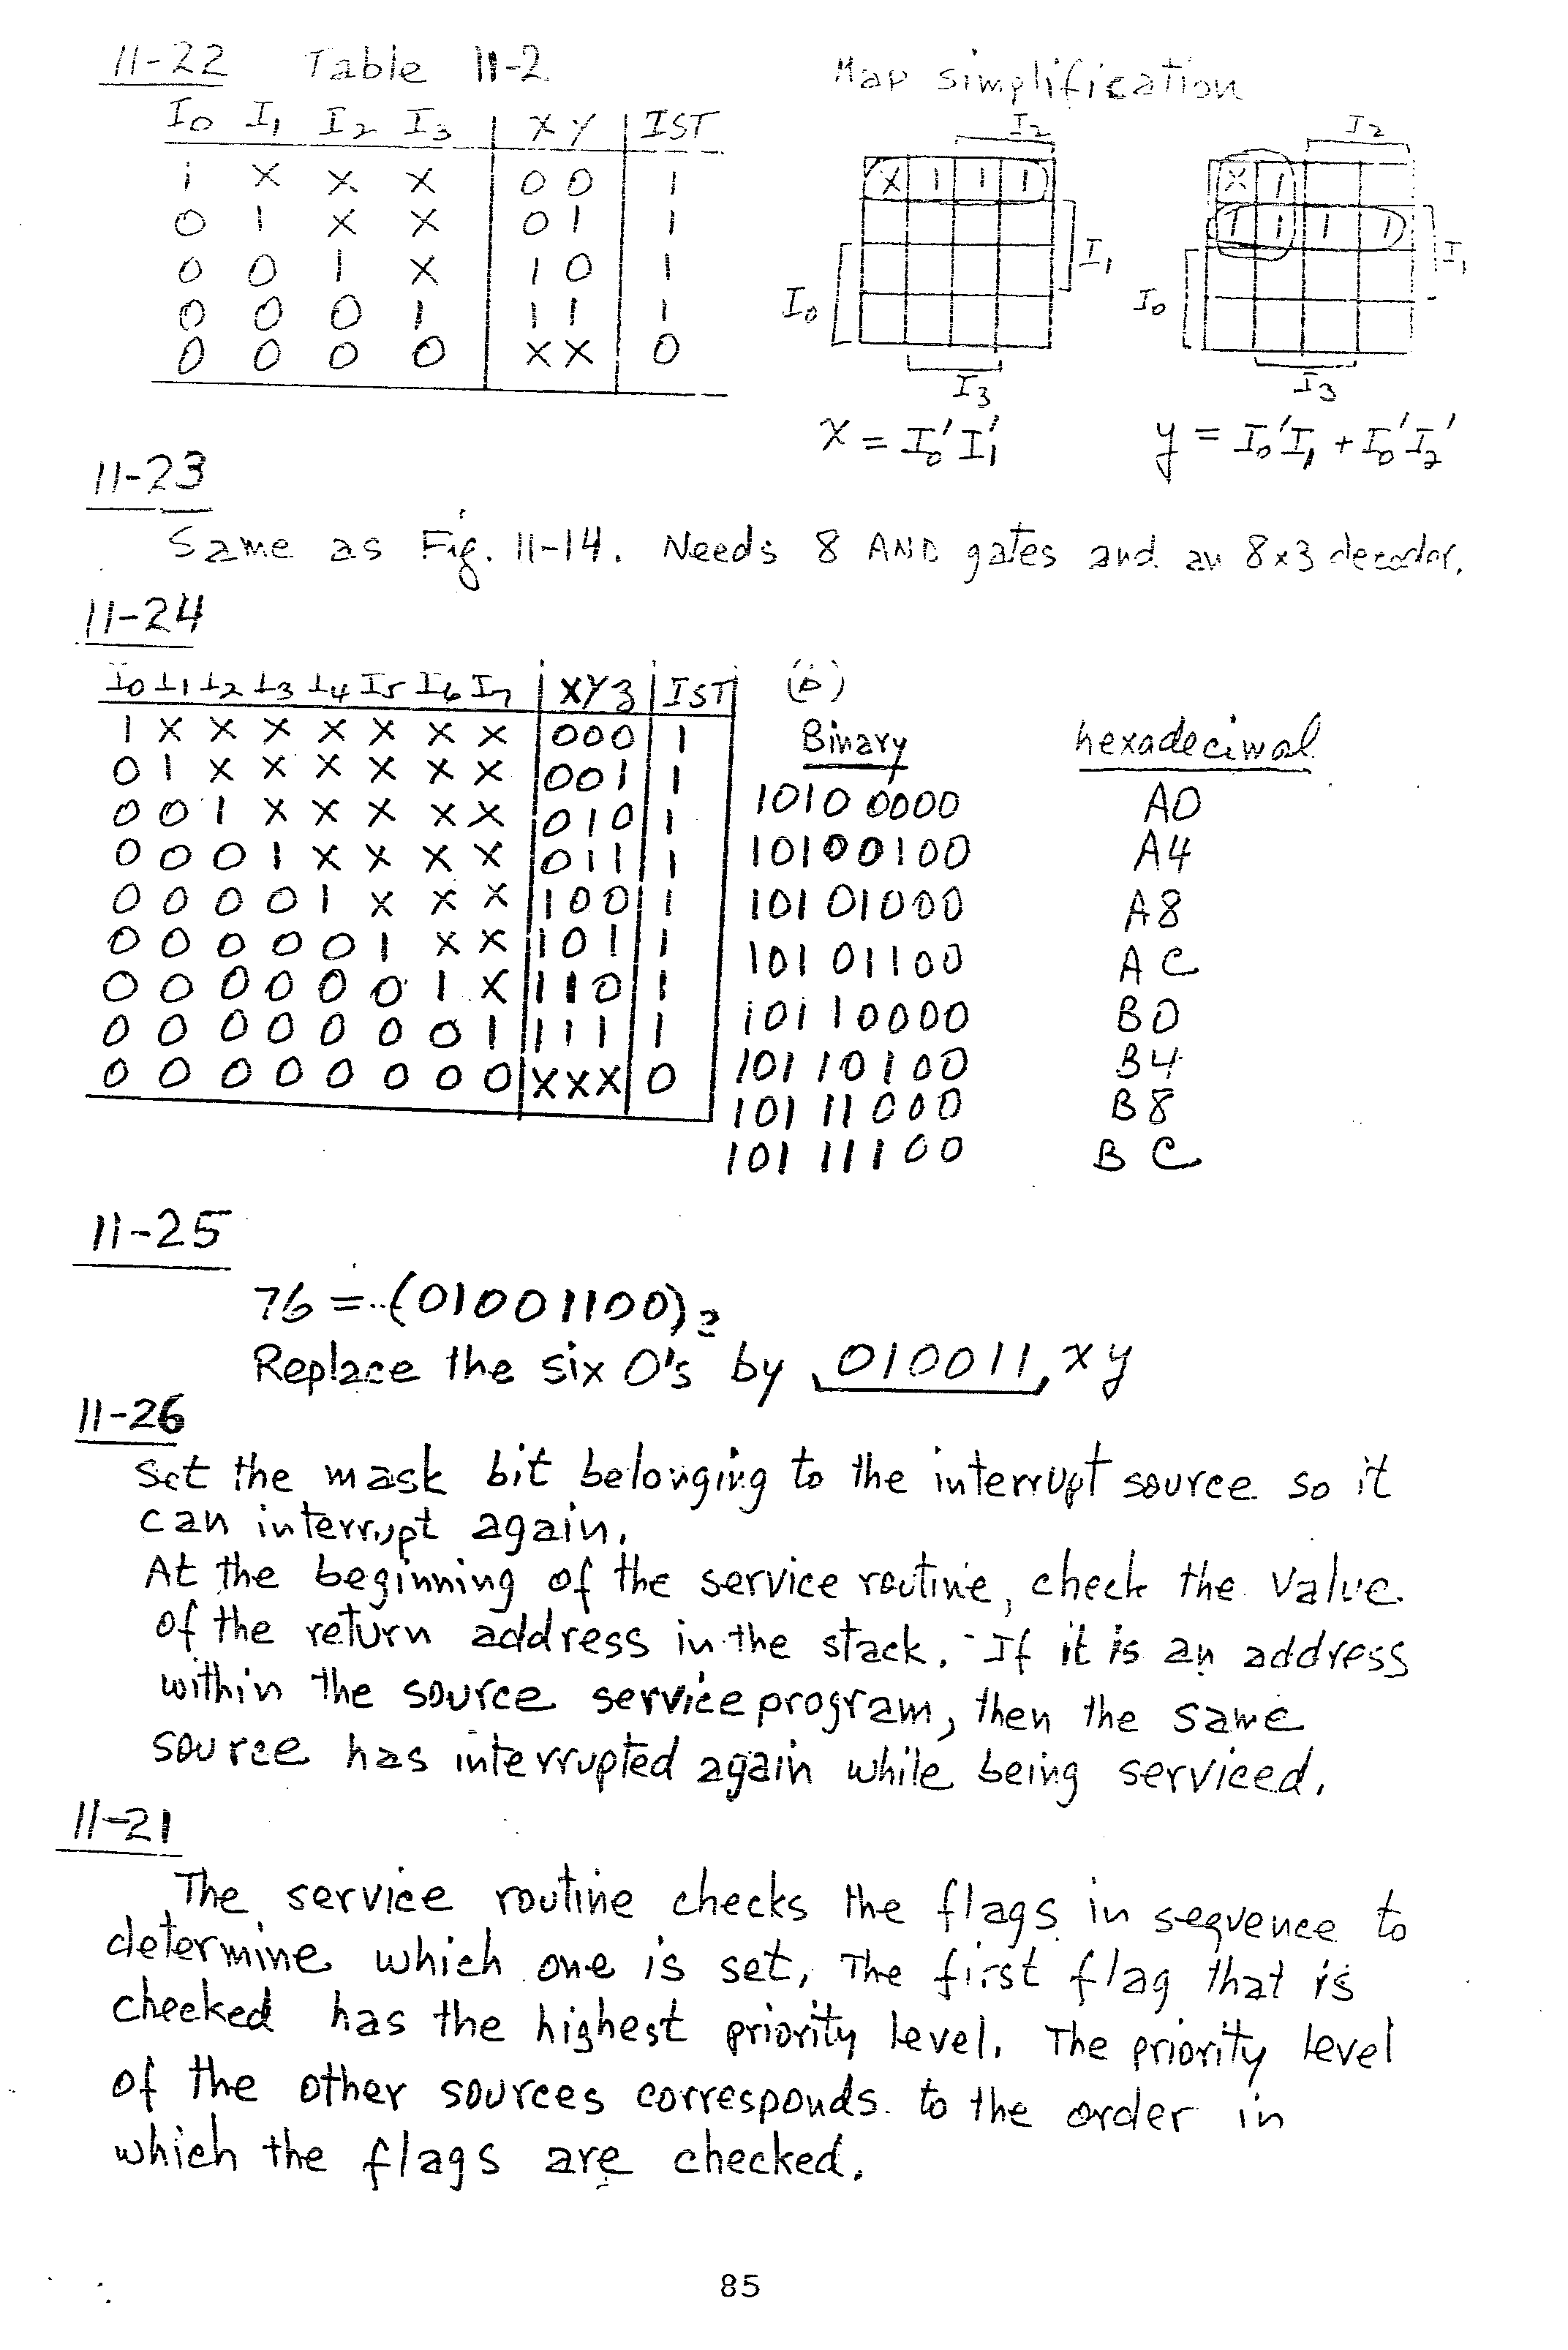 11-22 Table 11-2 Map simplification
I0 I1 I2 I3 | X Y | IST
1 X X X | 0 0 | 1
0 1 X X | 0 1 | 1
0 0 1 X | 1 0 | 1
0 0 0 1 | 1 1 | 1
0 0 0 0 | X X | 0
I2
X 1 1 1
I1
I0
I3
x = I0'I1'
I2
X 1
1 1 1 1
I1
I0
I3
y = I0'I1 + I0'I2'
11-23
Same as Fig. 11-14. Needs 8 AND gates and an 8x3 decoder.
11-24
I0 I1 I2 I3 I4 I5 I6 I7 | X Y Z | IST
1 X X X X X X X | 000 | 1
0 1 X X X X X X | 001 | 1
0 0 1 X X X X X | 010 | 1
0 0 0 1 X X X X | 011 | 1
0 0 0 0 1 X X X | 100 | 1
0 0 0 0 0 1 X X | 101 | 1
0 0 0 0 0 0 1 X | 110 | 1
0 0 0 0 0 0 0 1 | 111 | 1
0 0 0 0 0 0 0 0 | XXX | 0
(b)
Binary hexadecimal
1010 0000 A0
10100100 A4
10101000 A8
10101100 AC
10110000 B0
10110100 B4
10111000 B8
10111100 BC
11-25
76 = (01001100)2
Replace the six 0's by 010011 xy
11-26
Set the mask bit belonging to the interrupt source so it
can interrupt again.
At the beginning of the service routine, check the value
of the return address in the stack. If it is an address
within the source service program, then the same
source has interrupted again while being serviced.
11-21
The service routine checks the flags in sequence to
determine which one is set, The first flag that is
checked has the highest priority level. The priority level
of the other sources corresponds to the order in
which the flags are checked.
85